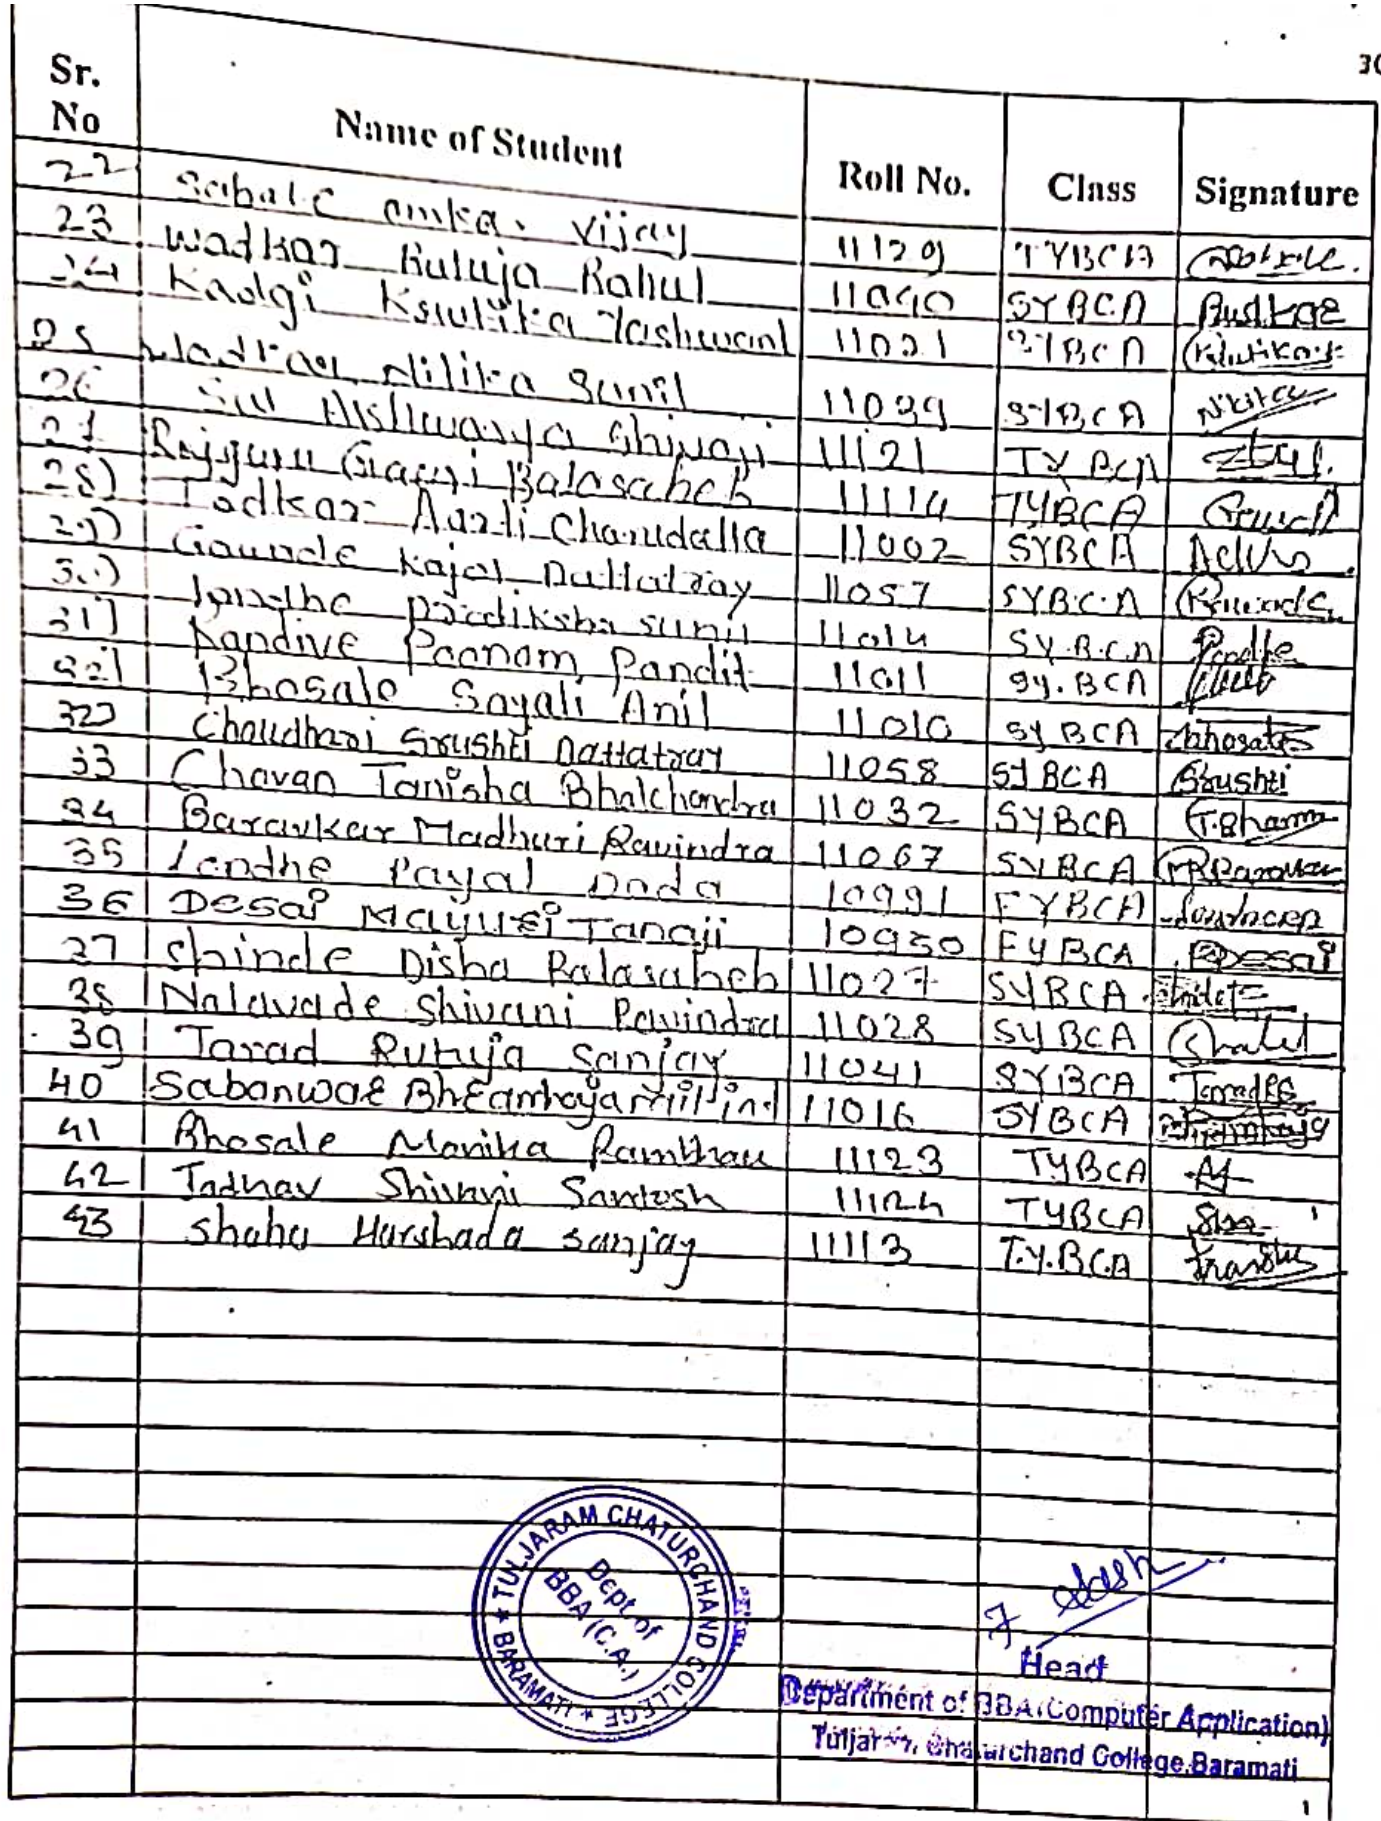 30
Sr. No Name of Student Roll No. Class Signature
22 Sabale Omkar Vijay 11129 TYBCA
23 Wadkar Rutuja Rahul 11040 SYBCA
24 Kadgi Yashwant 11021 SYBCA
25 Wadkar Nikita Sunil 11039 SYBCA Nikita
26 Aishwarya Shivaji 11121 TYBCA
27 Rajguru Gauri Balasaheb 11114 TYBCA
28) Todkar Aarti 11002 SYBCA
29) Gaunde Kajal Dattatray 11057 SYB.C.A
30) Londhe Pradiksha Sunil 11014 SY.B.C.A
31) Kandive Poonam Pandit 11011 SY.BCA
32) Bhosale Sayali Anil 11010 SYBCA Bhosale
32) Choudhari Srushti Dattatray 11058 SYBCA Srushti
33 Chavan Tanisha Bhalchandra 11032 SYBCA
34 Baravkar Madhuri Ravindra 11067 SYBCA
35 Londhe Payal Dada 10991 FYBCA
36 Desai Mayuri Tanaji 10950 FYBCA Desai
37 Shinde Disha Balasaheb 11027 SYBCA
38 Nalavade Shivani Ravindra 11028 SYBCA
39 Tarad Rutuja Sanjay 11041 SYBCA
40 Sabanwar Milind 11016 SYBCA
41 Bhosale Monika Rambhau 11123 TYBCA
42 Jadhav Shivani Santosh 11124 TYBCA
43 Shaha Harshada Sanjay 11113 T.Y.B.C.A
TULJARAM CHATURCHAND COLLEGE
★ BARAMATI ★
Dept of
BBA (C.A.)
Head
Department of BBA (Computer Application)
Tuljaram Chaturchand College, Baramati
1